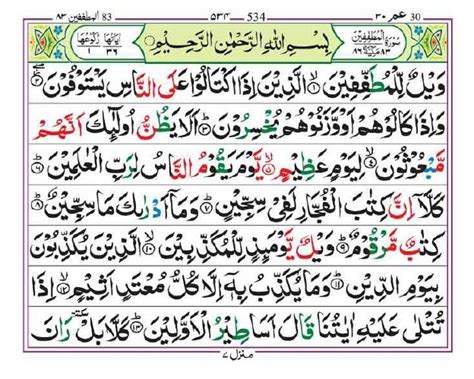 المطففين ٨٣ 83 ٥٣٤ 534 عم ٣٠ 30
سورة المطففين ٨٣ مكية ٨٦ بِسْمِ اللهِ الرَّحْمٰنِ الرَّحِيْمِ اٰیاتها ٣٦ رکوعها ١
وَيْلٌ لِّلْمُطَفِّفِيْنَ ۝١ الَّذِيْنَ اِذَا اكْتَالُوْا عَلَى النَّاسِ يَسْتَوْفُوْنَ ۝٢
وَاِذَا كَالُوْهُمْ اَوْ وَّزَنُوْهُمْ يُخْسِرُوْنَ ۝٣ اَلَا يَظُنُّ اُولٰٓئِكَ اَنَّهُمْ
مَّبْعُوْثُوْنَ ۝٤ لِيَوْمٍ عَظِيْمٍ ۝٥ يَّوْمَ يَقُوْمُ النَّاسُ لِرَبِّ الْعٰلَمِيْنَ ۝٦
كَلَّآ اِنَّ كِتٰبَ الْفُجَّارِ لَفِيْ سِجِّيْنٍ ۝٧ وَمَآ اَدْرٰىكَ مَا سِجِّيْنٌ ۝٨
كِتٰبٌ مَّرْقُوْمٌ ۝٩ وَيْلٌ يَّوْمَئِذٍ لِّلْمُكَذِّبِيْنَ ۝١٠ الَّذِيْنَ يُكَذِّبُوْنَ
بِيَوْمِ الدِّيْنِ ۝١١ وَمَا يُكَذِّبُ بِهٖٓ اِلَّا كُلُّ مُعْتَدٍ اَثِيْمٍ ۝١٢ اِذَا
تُتْلٰى عَلَيْهِ اٰيٰتُنَا قَالَ اَسَاطِيْرُ الْاَوَّلِيْنَ ۝١٣ كَلَّا بَلْ سكتة رَانَ
منزل ٧